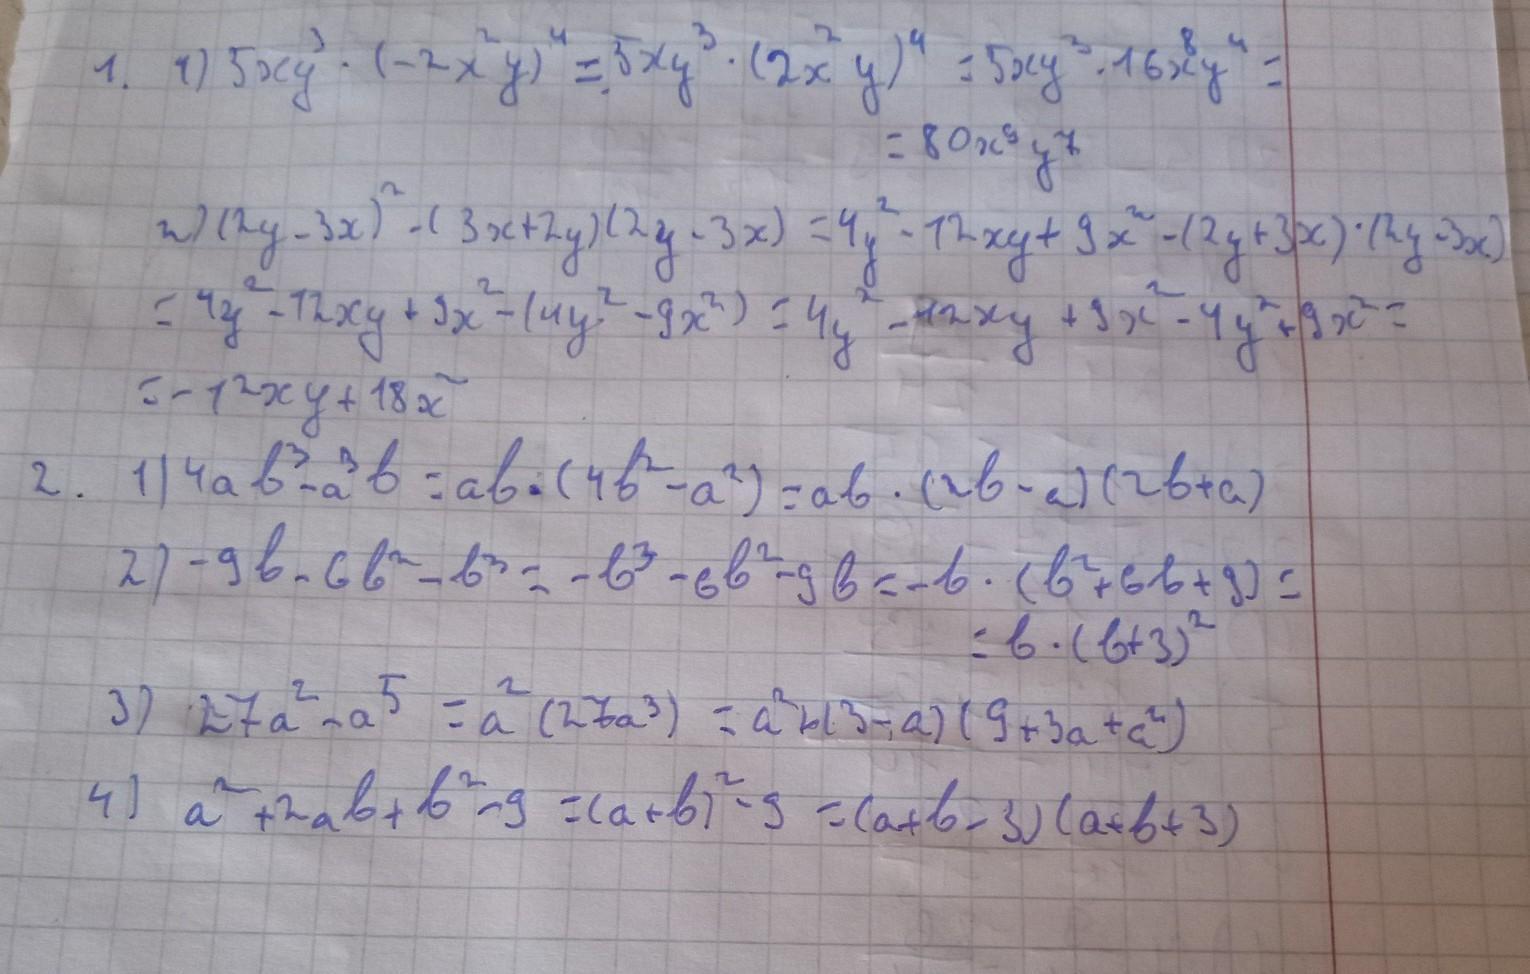 1. 1) 5xy³ · (-2x²y)⁴ = 5xy³ · (2x²y)⁴ = 5xy³ · 16x⁸y⁴ =
= 80x⁹y⁷
2) (2y - 3x)² - (3x+2y)(2y - 3x) = 4y² - 12xy + 9x² - (2y+3x)·(2y-3x)
= 4y² - 12xy + 9x² - (4y² - 9x²) = 4y² - 12xy + 9x² - 4y² + 9x² =
= -12xy + 18x²
2. 1) 4ab³ - a³b = ab · (4b² - a²) = ab · (2b - a)(2b+a)
2) -9b - 6b² - b³ = -b³ - 6b² - 9b = -b · (b² + 6b + 9) =
= b · (b+3)²
3) 27a² - a⁵ = a² (27a³) = a² (3 - a) (9 + 3a + a²)
4) a² + 2ab + b² - 9 = (a+b)² - 9 = (a+b - 3) (a+b+3)